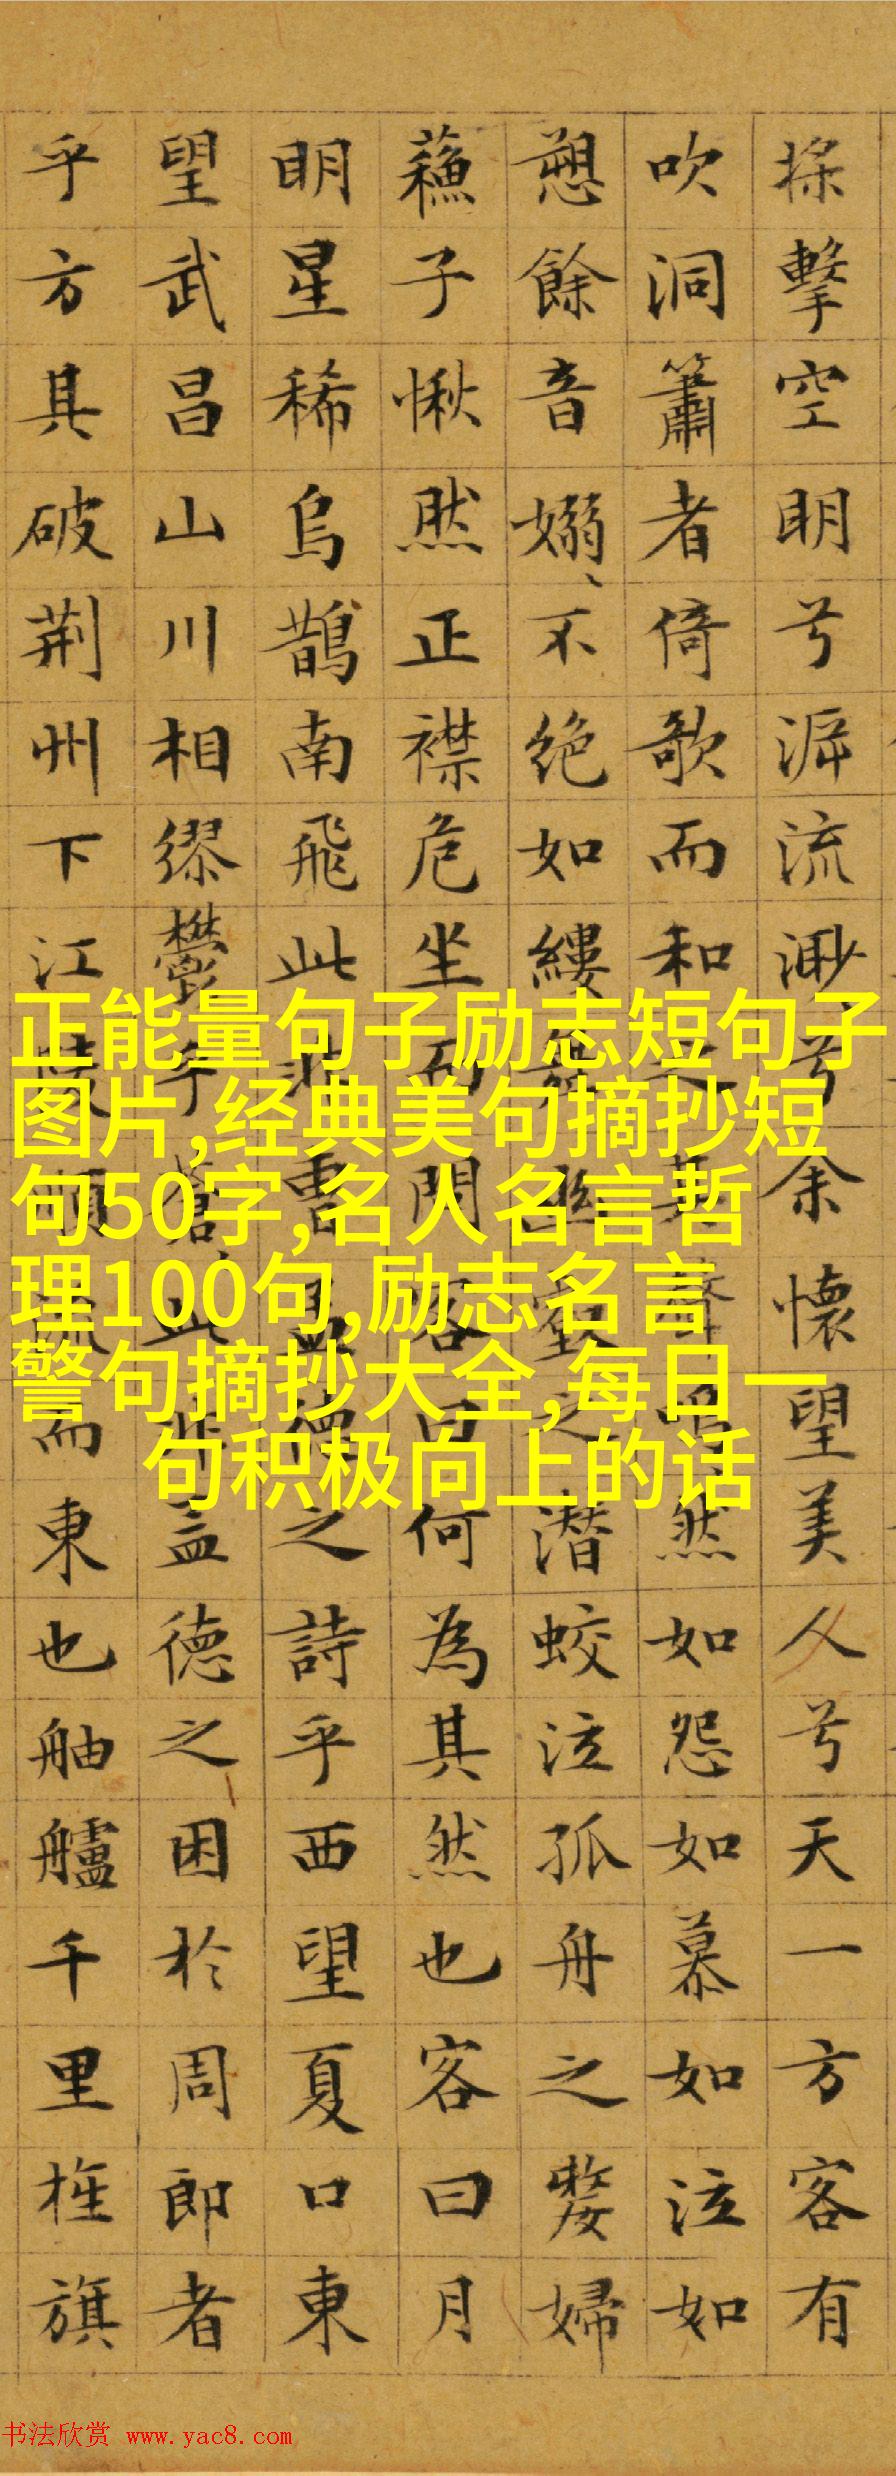 擊空明兮泝流渺兮余懷望美人兮天一方客有
吹洞簫者倚歌而和之其聲嗚然如怨如慕如泣如
愬餘音嫋〻不絕如縷舞幽壑之潛蛟泣孤舟之嫠婦
蘇子愀然正襟危坐而問客曰何為其然也客曰月
明星稀烏鵲南飛此非曹孟德之詩乎西望夏口東
望武昌山川相繆鬱乎蒼〻此非孟德之困於周郎者
乎方其破荊州下江陵順流而東也舳艫千里旌旗
正能量句子励志短句子
图片,经典美句摘抄短
句50字,名人名言哲
理100句,励志名言
警句摘抄大全,每日一
句积极向上的话
书法欣赏 www.yac8.com